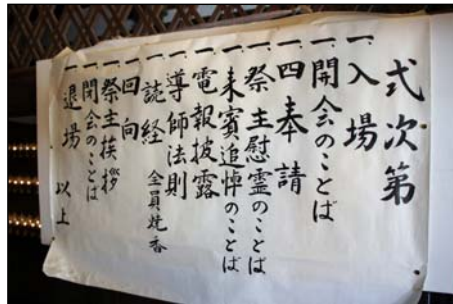 式次第
一、入場
一、開会のことば
一、四奉請
一、祭主慰霊のことば
一、来賓追悼のことば
一、電報披露
一、導師法則
一、読経 全員焼香
一、回向
一、祭主挨拶
一、閉会のことば
一、退場 以上